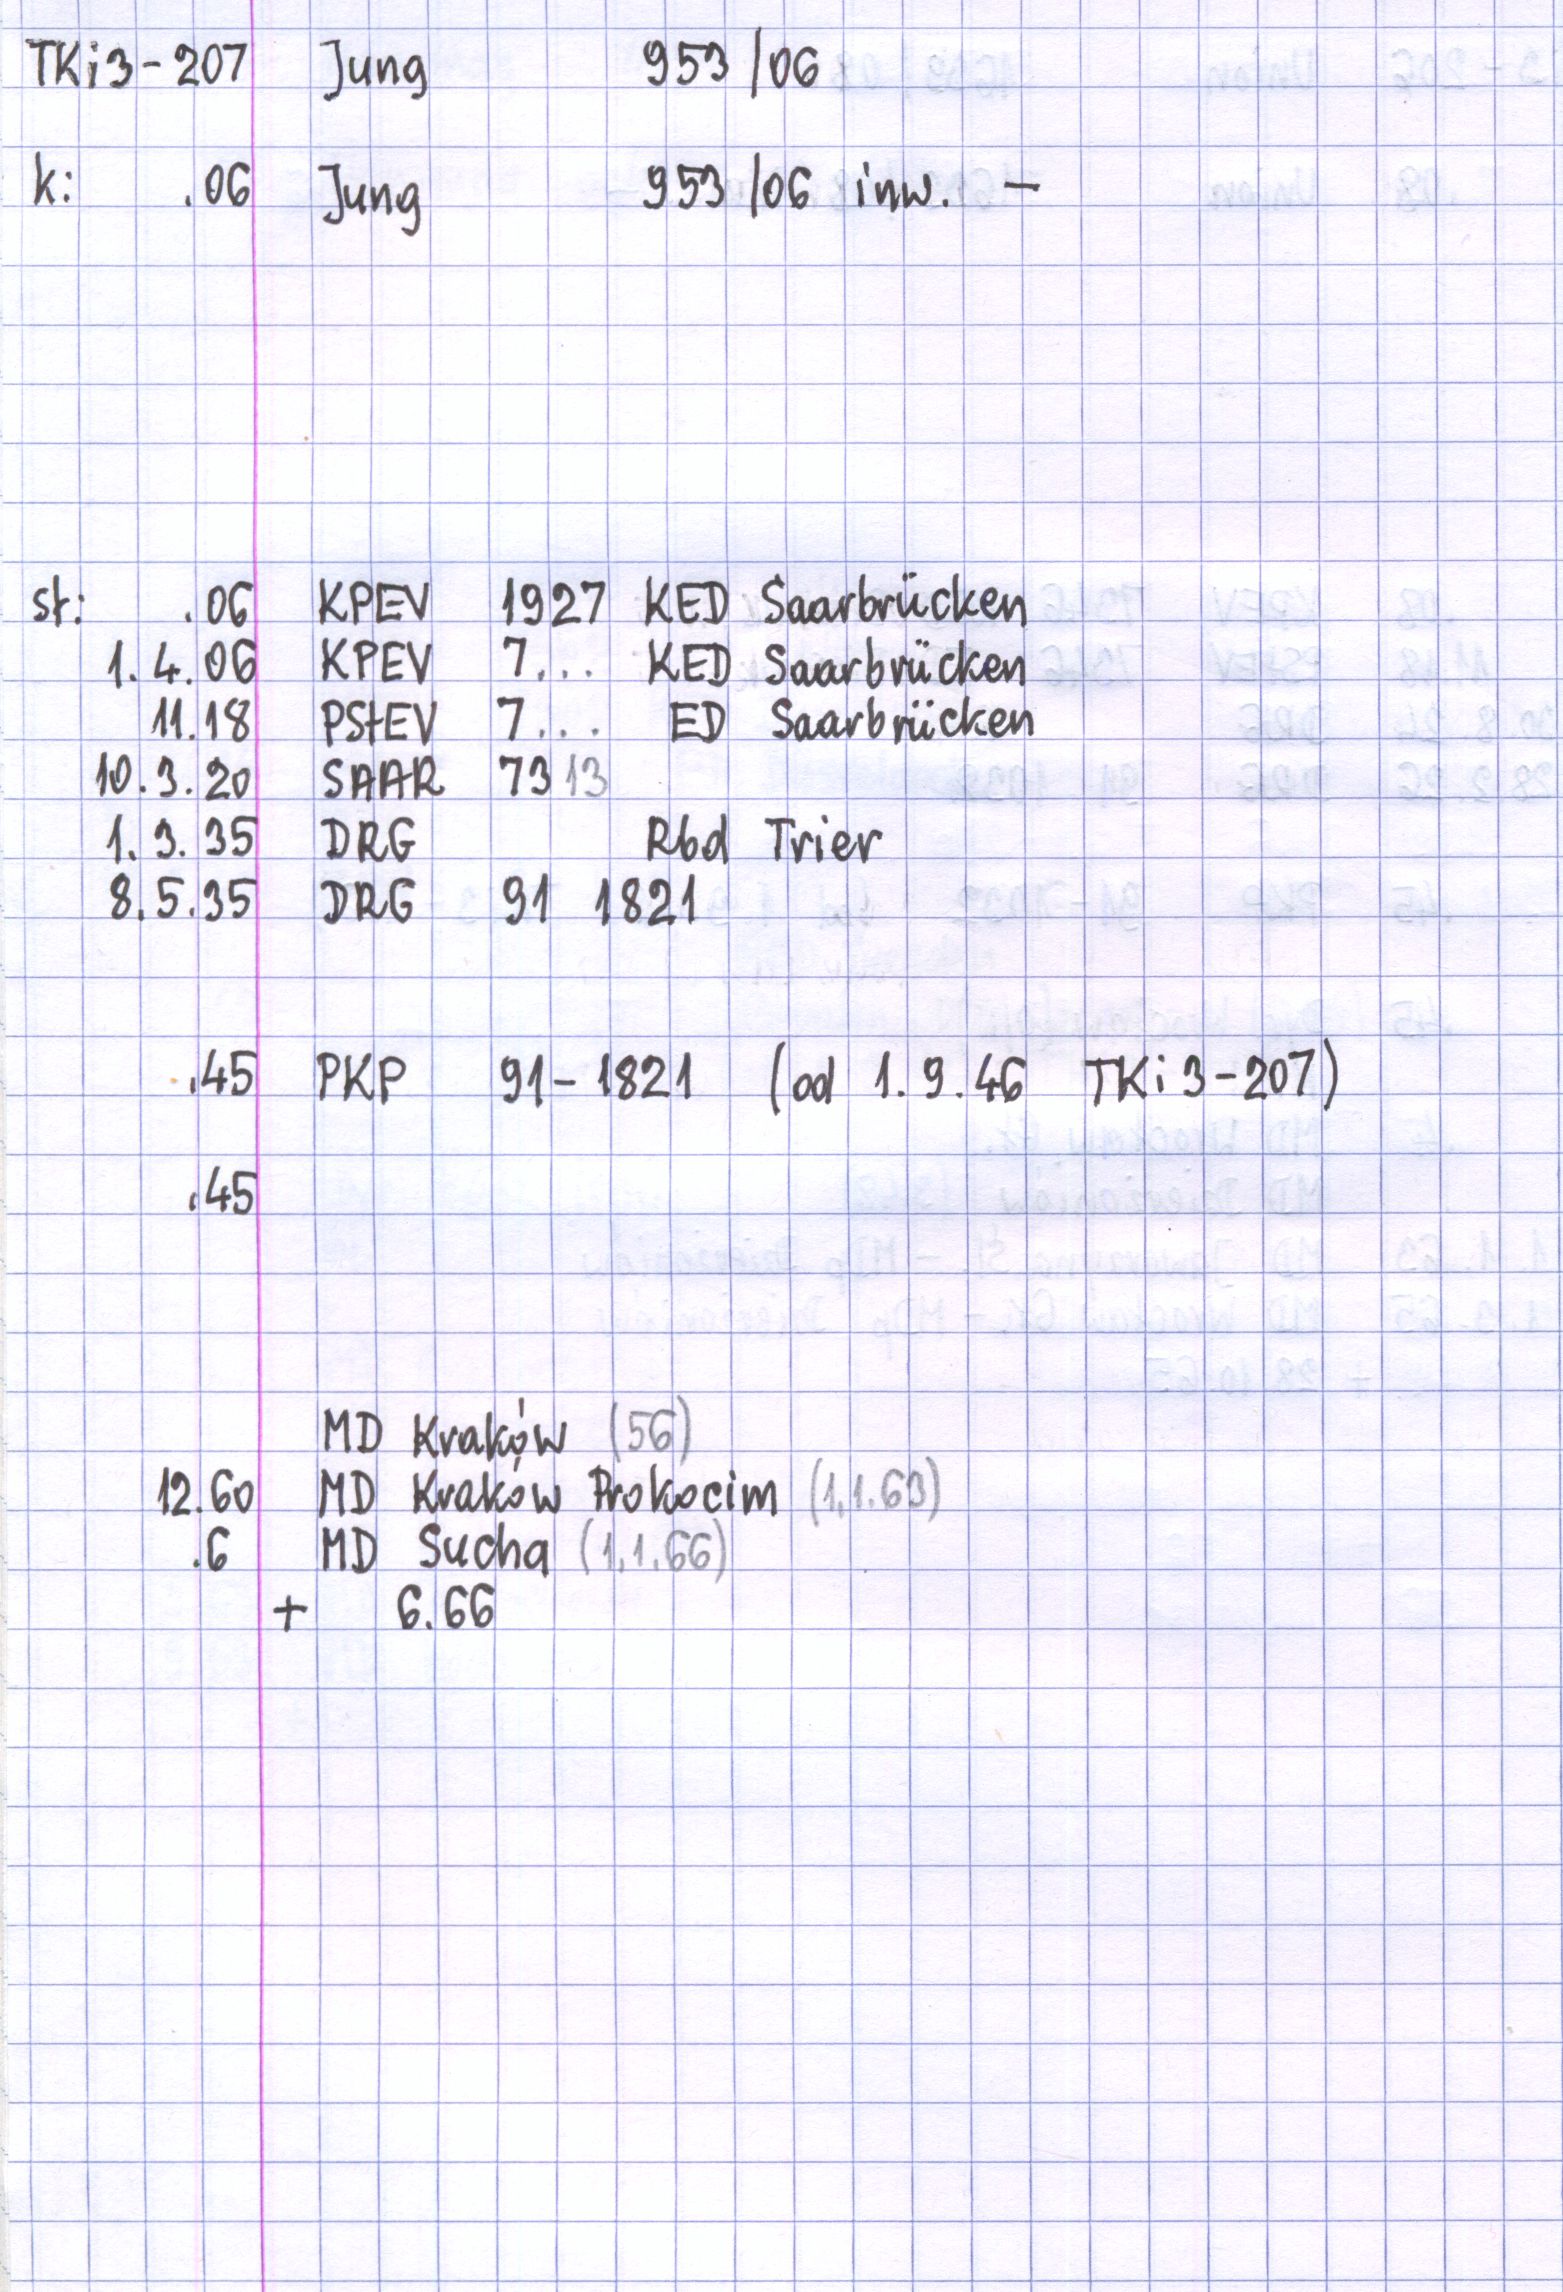 TKi3-207 Jung 953/06
k: .06 Jung 953/06 inw. -
st: .06 KPEV 1927 KED Saarbrücken
1.4.06 KPEV 7... KED Saarbrücken
11.18 PStEV 7... ED Saarbrücken
10.3.20 SAAR 7313
1.3.35 DRG Rbd Trier
8.5.35 DRG 91 1821
.45 PKP 91-1821 (od 1.9.46 TKi3-207)
.45
MD Kraków (56)
12.60 MD Kraków Prokocim (1.1.63)
.6 MD Sucha (1.1.66)
+ 6.66